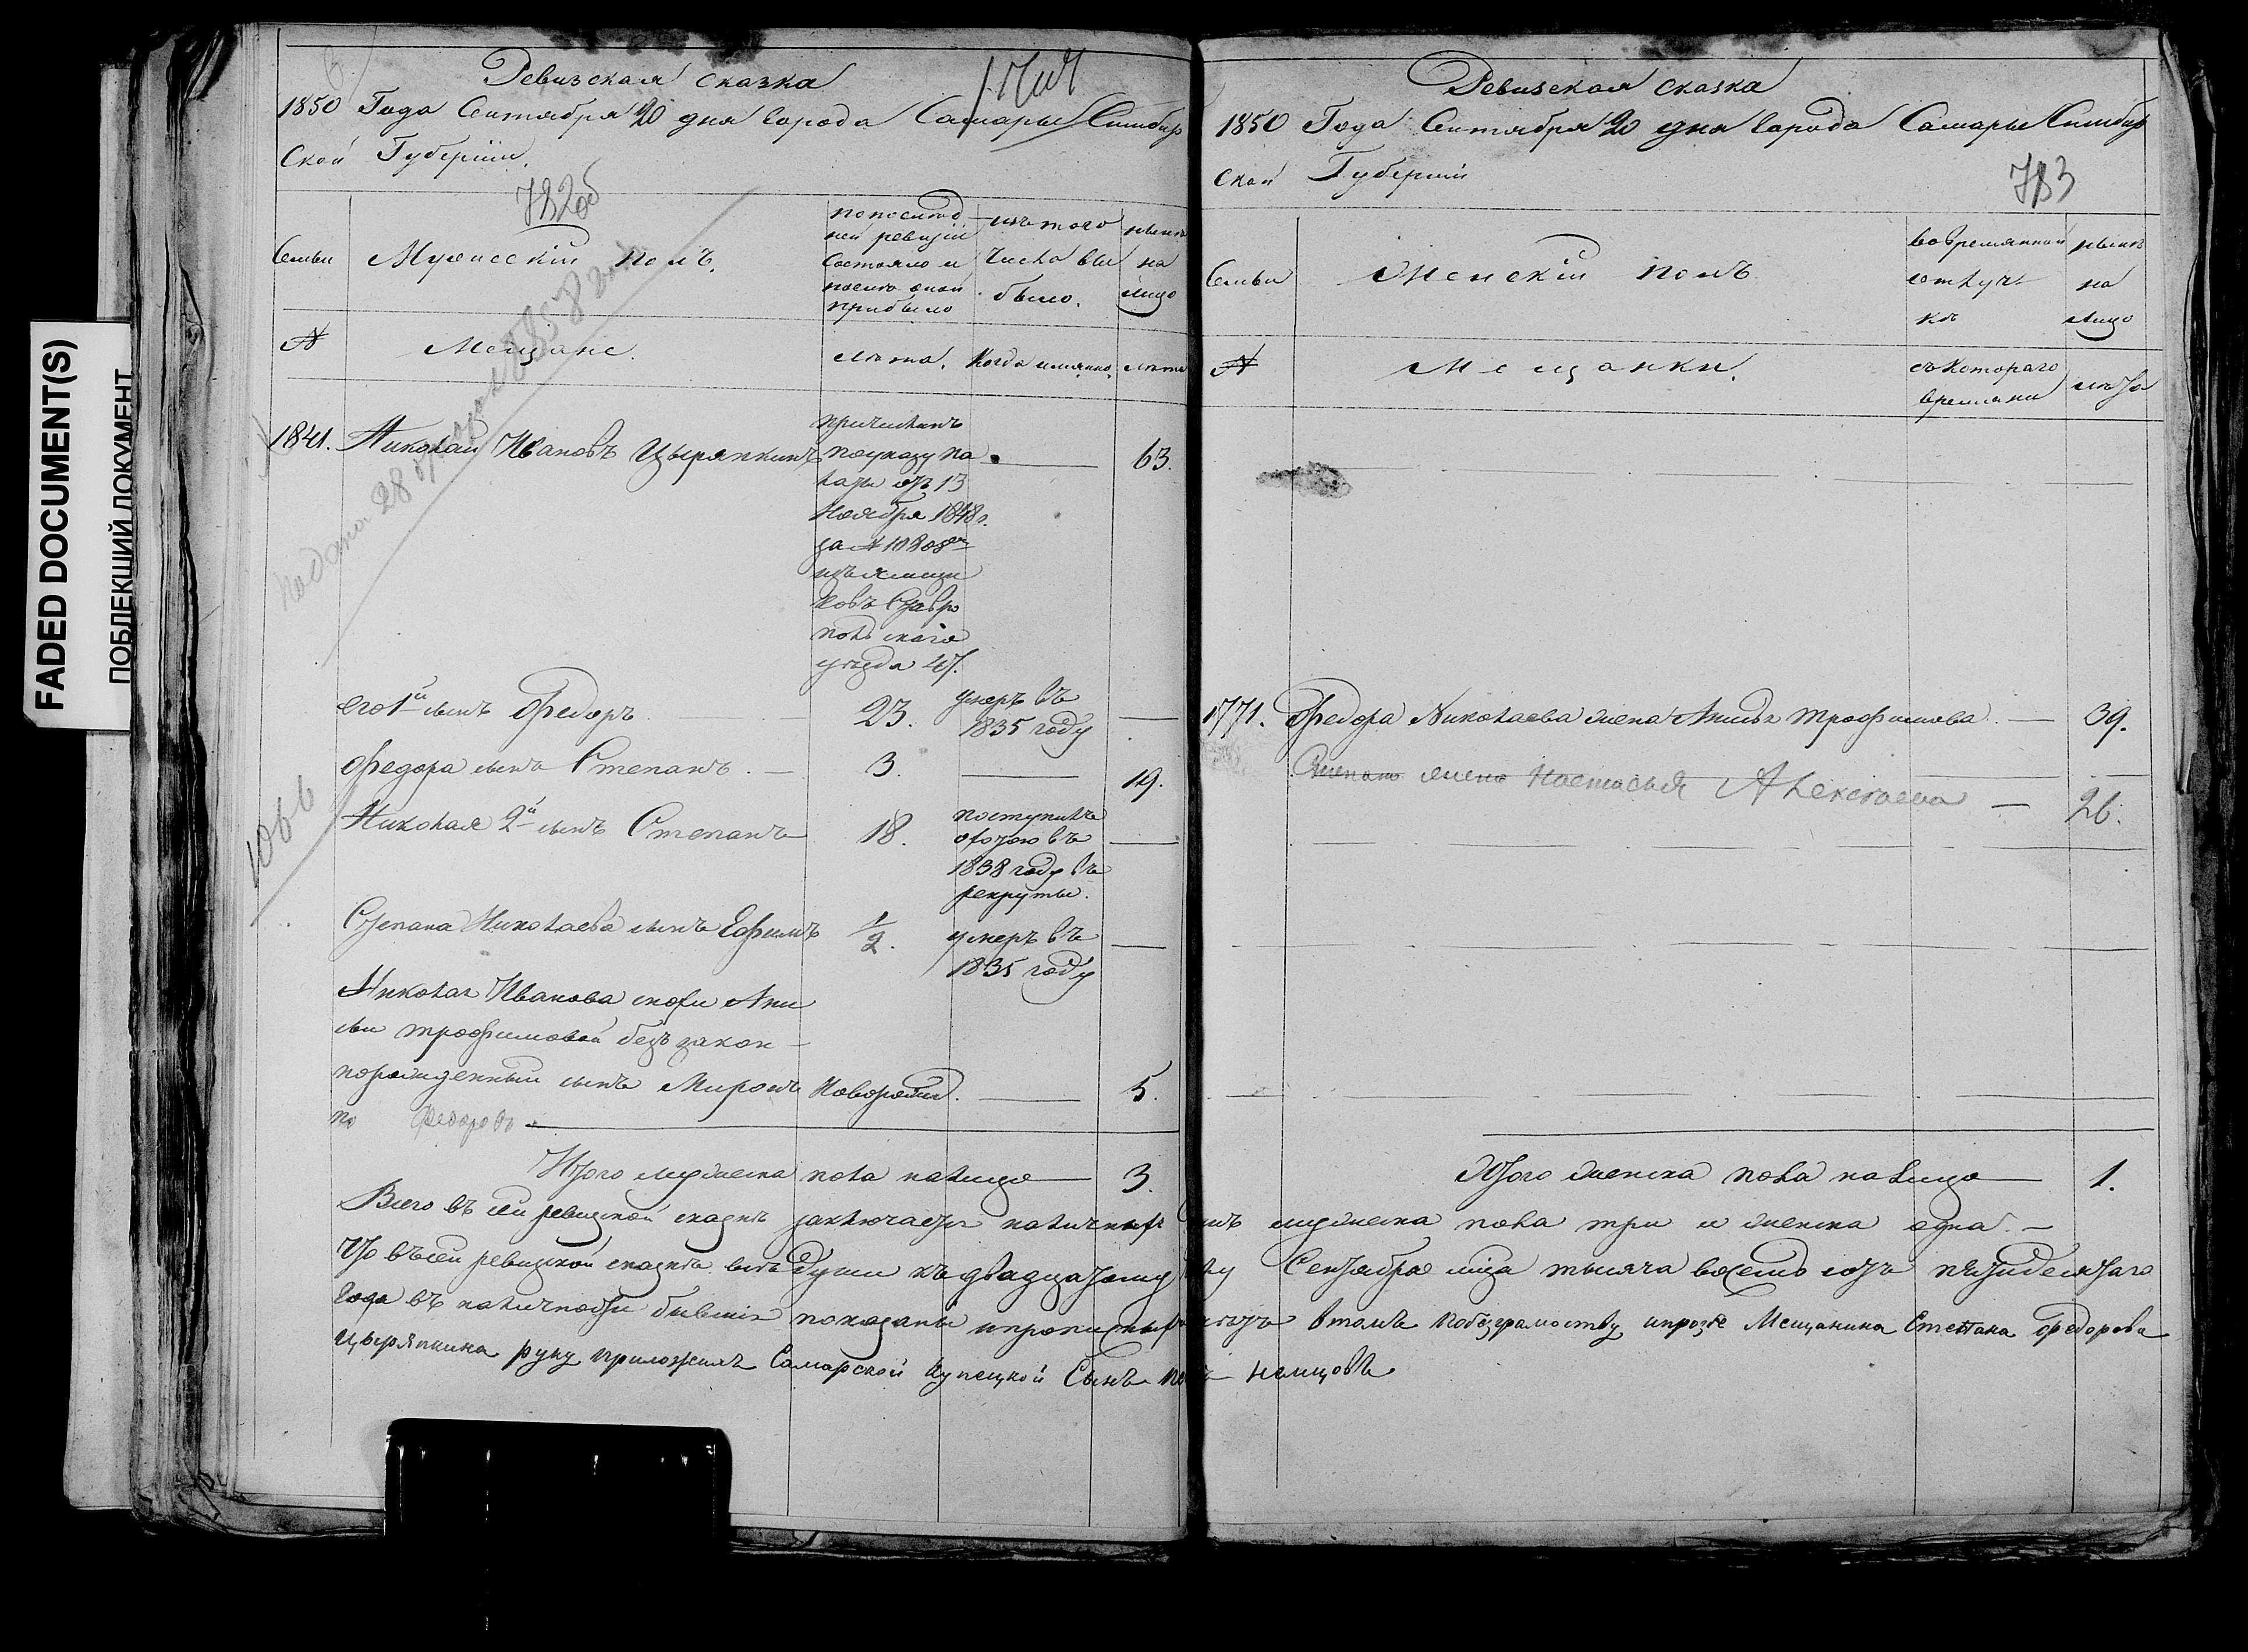 FADED DOCUMENT(S)
ПОБЛЕКШИЙ ДОКУМЕНТ
Ревизская сказка
1850 Года Сентября 20 дня Города Самары Симбир
ской Губернии.
782об
Семьи
Мужескiй полъ.
по послед
ней ревизiи
состояло и
после оной
прибыло
изъ того
числа вы
было.
ныне
на
лицо
№
Мещане.
лета.
Когда имянно.
лета
1841.
Николай Ивановъ Цыряпкинъ
причисленъ
по указу па
латы отъ 13
Ноября 1848 г.
за № 10808
изъ ямщи
ковъ Ставро
польскаго
уезда 47.
63.
его 1й сынъ Федоръ
23.
умеръ въ
1835 году
Федора сынъ Степанъ.
3.
19.
Николая 2й сынъ Степанъ
18.
поступилъ
въ
1838 году въ
рекруты.
Степана Николаева сынъ Ефимъ
1/2.
умеръ въ
1835 году
Николая Иванова снохи Ани
сьи Трофимовой без закон
норожденный сынъ Миронъ
Новорожд.
5.
по Федоровъ
Итого мужеска пола налицо
3.
1066
Ревизская сказка
1850 Года Сентября 20 дня Города Самары Симбир
ской Губернии
783
Семьи
Женскiй полъ
во временной
отлуч
ке
ныне
на
лицо
№
Мещанки.
съ котораго
времяни
лета
1771.
Федора Николаева жена Анисья Трофимова.
39.
Степана жена Настасья Алексеева
26.
Итого женска пола налицо
1.
Всего въ сей ревизской сказке заключается наличныхъ душъ мужеска пола три и женска одна.
Что въ сей ревизкой сказке все души къ двадцатому Сентября мца тысяча восемь сотъ пятидесятаго
Года въ наличности бывшiя показаны и прописныхъ нетъ втомъ побезграмоству ипрозбе Мещанина Степана Федорова
Цыряпкина руку приложилъ Самарской Купецкой Сынъ Немцовъ